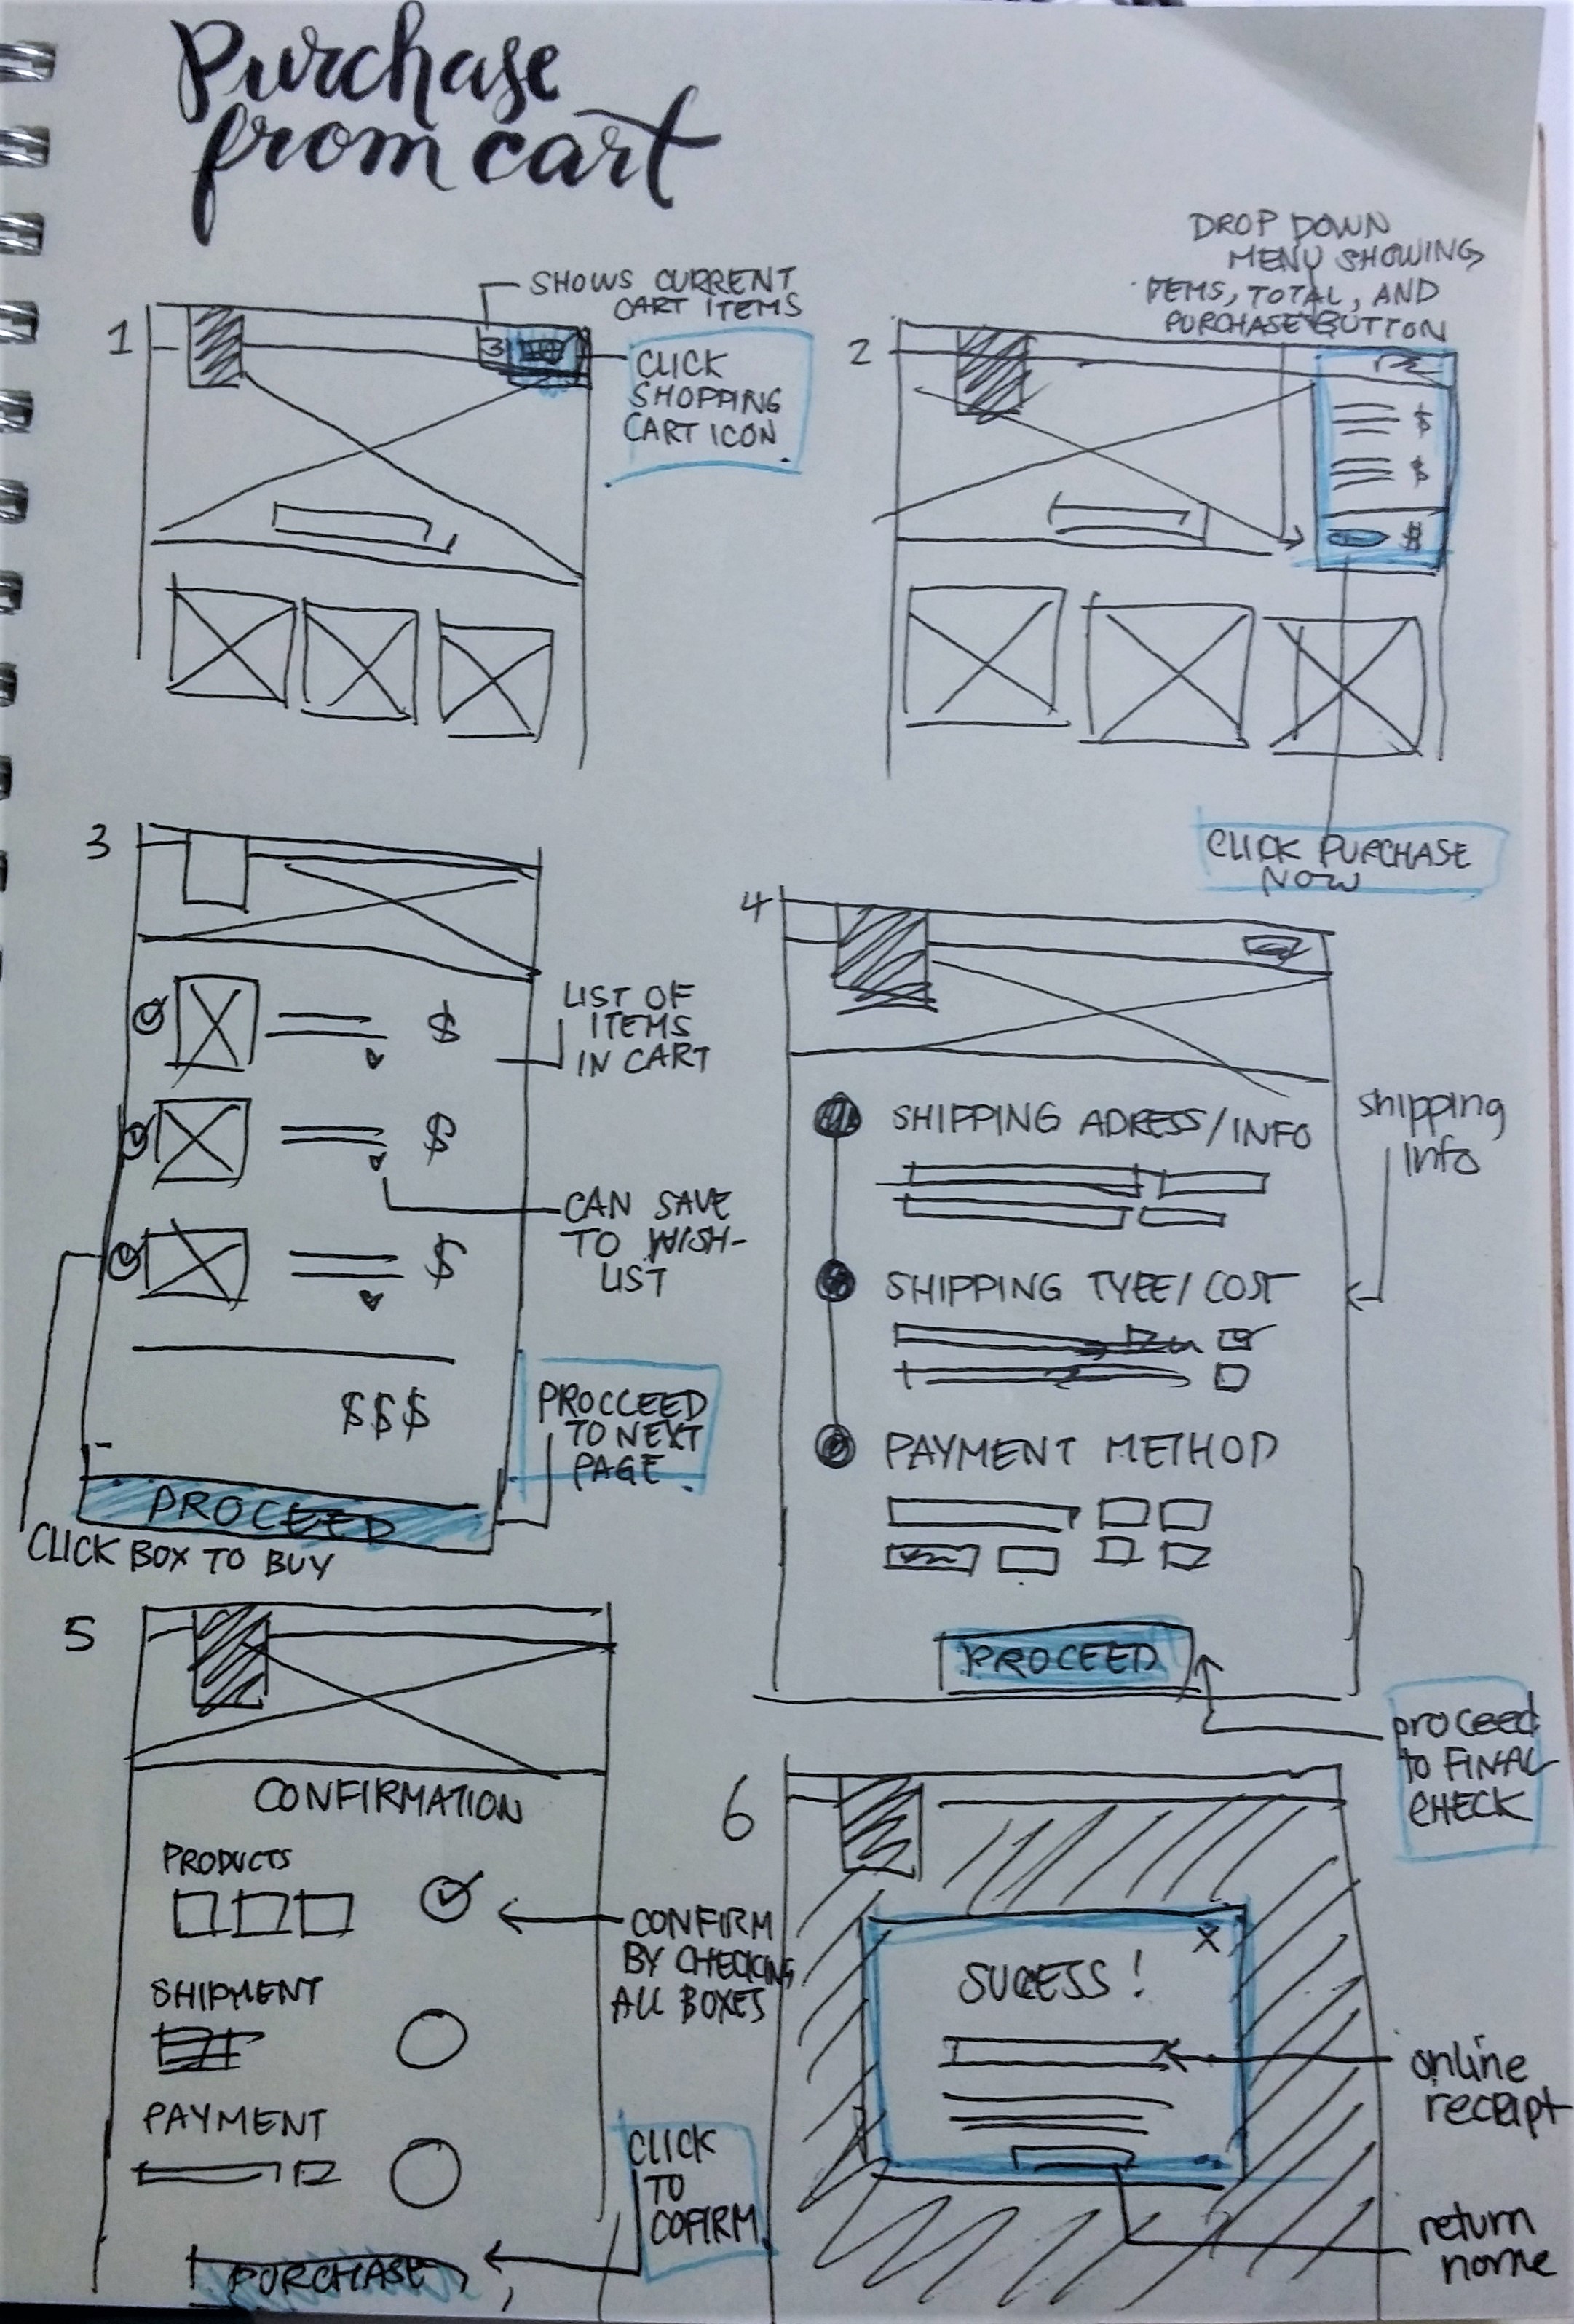 Purchase
from cart
1
SHOWS CURRENT
CART ITEMS
3
CLICK
SHOPPING
CART ICON
2
DROP DOWN
MENU SHOWING
ITEMS, TOTAL, AND
PURCHASE BUTTON
$
$
CLICK PURCHASE
NOW
3
$
LIST OF
ITEMS
IN CART
$
CAN SAVE
TO WISH-
LIST
$
$$$
PROCCEED
TO NEXT
PAGE
PROCEED
CLICK BOX TO BUY
4
SHIPPING ADRESS/INFO
shipping
info
SHIPPING TYPE/COST
PAYMENT METHOD
PROCEED
proceed
to FINAL
CHECK
5
CONFIRMATION
PRODUCTS
CONFIRM
BY CHECKING
ALL BOXES
SHIPMENT
PAYMENT
CLICK
TO
COFIRM
PURCHASE
6
X
SUCESS!
online
receipt
return
home